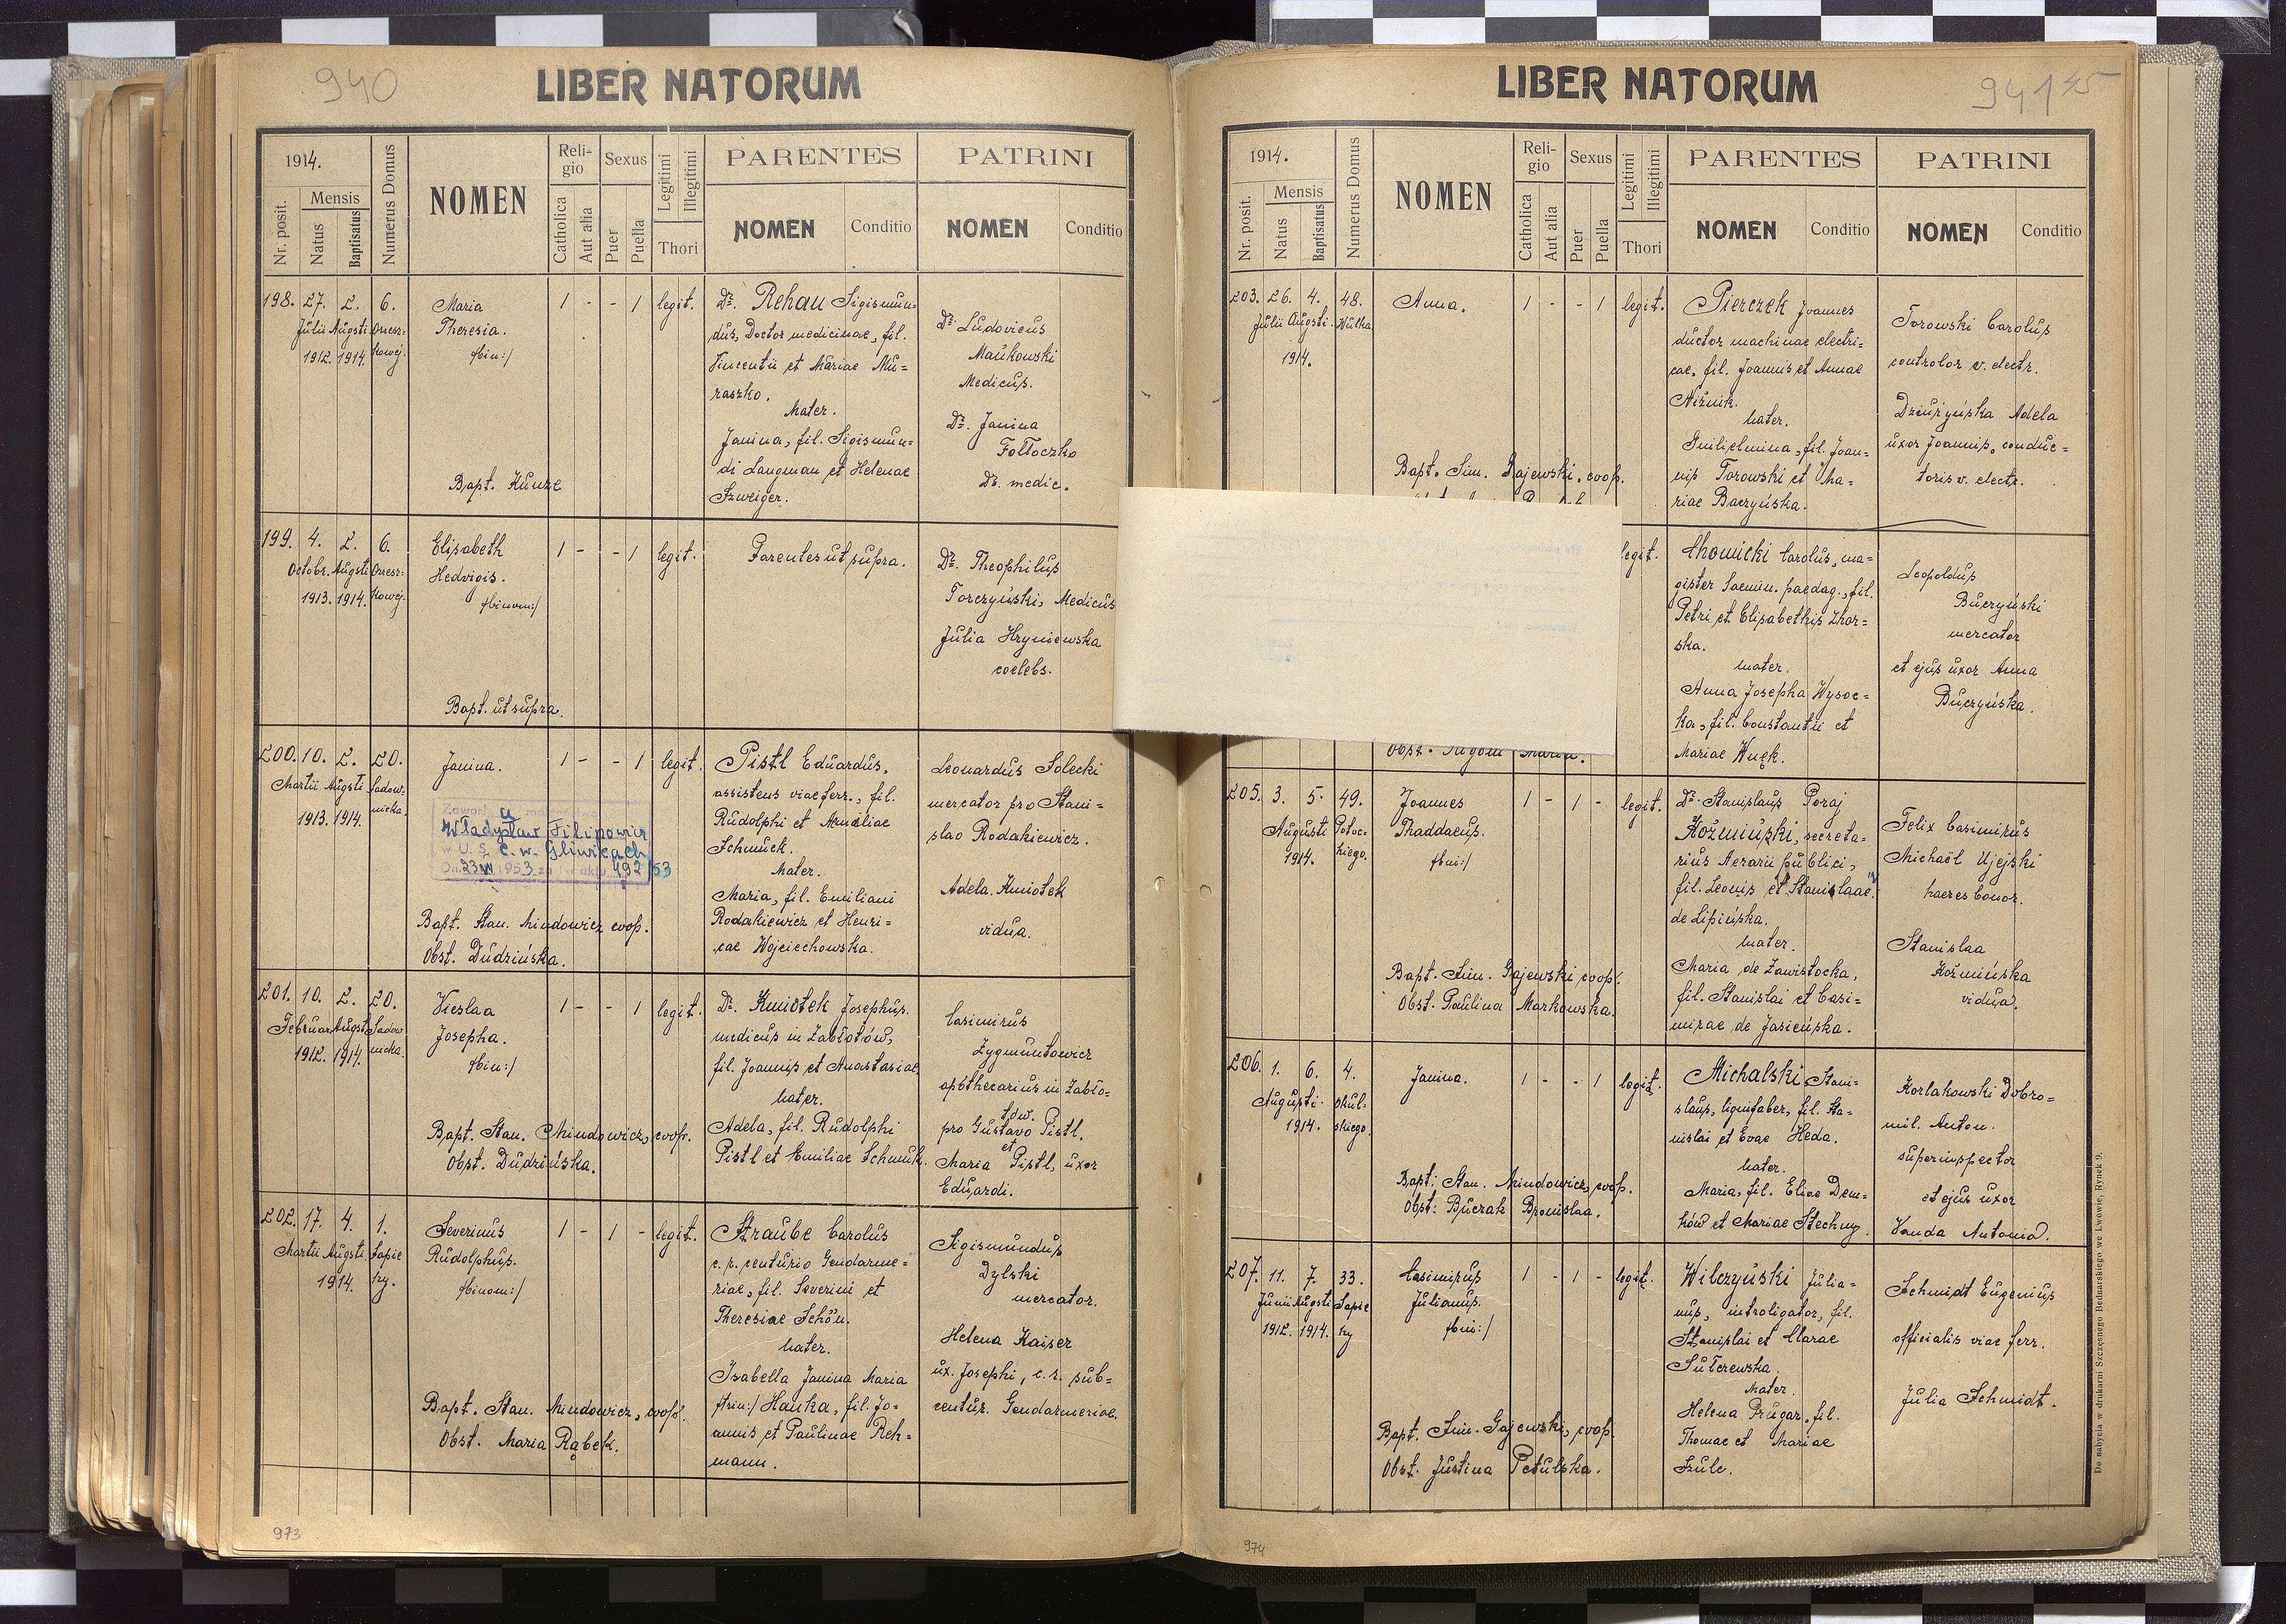 940
LIBER NATORUM
1914.
Nr. posit.
Mensis
Natus
Baptisatus
Numerus Domus
NOMEN
Reli-
gio
Catholica
Aut alia
Sexus
Puer
Puella
Legitimi
Illegitimi
Thori
PARENTES
NOMEN
Conditio
PATRINI
NOMEN
Conditio
198. 27. 2. 6.
Julii Augsti
1912. 1914.
Maria
Theresia.
/bin:/
1 - - 1 legit.
Bapt. Kunze
Dr. Rehau Sigismun-
dus, Doctor medicinae, fil.
Vincentii et Mariae Mu-
raszko.
Mater.
Janina, fil. Sigismun-
di Langman et Helenae
Szweiger.
Dr. Ludovicus
Mańkowski
Medicus.
Dr. Janina
Fołtoczko
Dr. medic.
199. 4. 2. 6.
Octobr. Augsti
1913. 1914.
Elisabeth
Hedvigis.
/binom:/
1 - - 1 legit.
Bapt. ut supra.
Parentes ut supra.
Dr. Theophilus
Torczyński, Medicus
Julia Hryniewska
coelebs.
200. 10. 2. 20.
Martii Augsti Sadow-
nicka.
1913. 1914.
Janina.
1 - - 1 legit.
Władysław Filipowicz
w U. S. C. w. Gliwicach
Dn. 23 IV 1953 492/53
Bapt. Stan. Mindowicz coop.
Obst. Dudzińska.
Pistl Eduardus,
assistens viae ferr., fil.
Rudolphi et Aemiliae
Schmuck.
Mater.
Maria, fil. Emiliani
Rodakiewicz et Henri-
cae Wojciechowska.
Leonardus Solecki
mercator pro Stani-
slao Rodakiewicz.
Adela Kmiotek
vidua.
201. 10. 2. 20.
Februar Augsti Sadow
nicka.
1912. 1914.
Vieslaa
Josepha.
/bin:/
1 - - 1 legit.
Bapt. Stan. Mindowicz, coop.
Obst. Dudzińska.
Dr. Kmiotek Josephus.
medicus in Zabłotów,
fil. Joannis et Anastasiae
Mater.
Adela, fil. Rudolphi
Pistl et Emiliae Schmuk.
Casimirus
Zygmuntowicz
apothecarius in Zabło-
tów.
pro Gustavo Pistl.
et
Maria Pistl, uxor
Eduardi.
202. 17. 4. 1.
Martii Augsti Sapie
hy.
1914.
Severinus
Rudolphus.
/binom:/
1 - 1 - legit.
Bapt. Stan. Mindowicz, coop.
Obst. Maria Rąbek.
Straube Carolus
c. r. centurio Gendarme-
riae, fil. Severini et
Theresiae Schön.
Mater.
Isabella Janina Maria
/trin:/ Hanka, fil. Jo-
annis et Paulinae Reh-
mann.
Sigismundus
Dylski
mercator.
Helena Kaiser
ux. Josephi, c. r. sub-
centur. Gendarmeriae.
973
941
LIBER NATORUM
1914.
Nr. posit.
Mensis
Natus
Baptisatus
Numerus Domus
NOMEN
Reli-
gio
Catholica
Aut alia
Sexus
Puer
Puella
Legitimi
Illegitimi
Thori
PARENTES
NOMEN
Conditio
PATRINI
NOMEN
Conditio
203. 26. 4. 48.
Julii Augsti. Wulka
1914.
Anna.
1 - - 1 legit.
Bapt. Sim. Gajewski, coop.
Pierczek Joannes
ductor machinae electri-
cae, fil. Joannis et Annae
Niżnik.
Mater.
Guilielmina, fil. Joan-
nis Torowski et Ma-
riae Baczyńska.
Torowski Carolus
controlor v. electr.
Dziużyńska Adela
uxor Joannis, conduc-
toris v. electr.
legit.
Obst. Maria.
Chomicki Carolus, ma-
gister Saemin. paedag., fil.
Petri et Elisabethis Zhor-
ska.
Mater.
Anna Josepha Wysoc-
ka, fil. Constantii et
Mariae Wnęk.
Leopoldus
Buczyński
mercator
et ejus uxor Anna
Buczyńska.
205. 3. 5. 49.
Augusti Potoc-
kiego.
1914.
Joannes
Thaddaeus.
/bin:/
1 - 1 - legit.
Bapt. Sim. Gajewski coop.
Obst. Paulina Markowska.
Dr. Stanislaus Poraj
Koźmiński, secreta-
rius Aerarii publici,
fil. Leonis et Stanislaae
de Lipińska.
Mater.
Maria de Zawistocka,
fil. Stanislai et Casi-
mirae de Jasieńska.
Felix Casimirus
Michaël Ujejski
haeres bonor.
Stanislaa
Koźmińska
vidua.
206. 1. 6. 4.
Augusti
1914.
Janina.
1 - - 1 legit.
Bapt: Stan. Mindowicz, coop.
Obst: Buczak Bronislaa.
Michalski Stani-
slaus, lignifaber, fil. Sta-
nislai et Evae Heda.
Mater.
Maria, fil. Eliae Dem-
ków et Mariae Stechny.
Korlakowski Dobro-
mil. Anton.
superinspector
et ejus uxor
Vanda Antonia.
207. 11. 7. 33.
Junii Augsti Sapie
hy
1912. 1914.
Casimirus
Julianus.
/bin:/
1 - 1 - legit.
Bapt. Sim. Gajewski, coop.
Obst. Justina Petulska.
Wilczyński Julia-
nus, introligator, fil.
Stanislai et Clarae
Sulczewska.
Mater.
Helena Prugar, fil.
Thomae et Mariae
Szulc.
Schmidt Eugenius
officialis viae ferr.
Julia Schmidt.
Do nabycia w drukarni Szczęsnego Bednarskiego we Lwowie, Rynek 9.
974